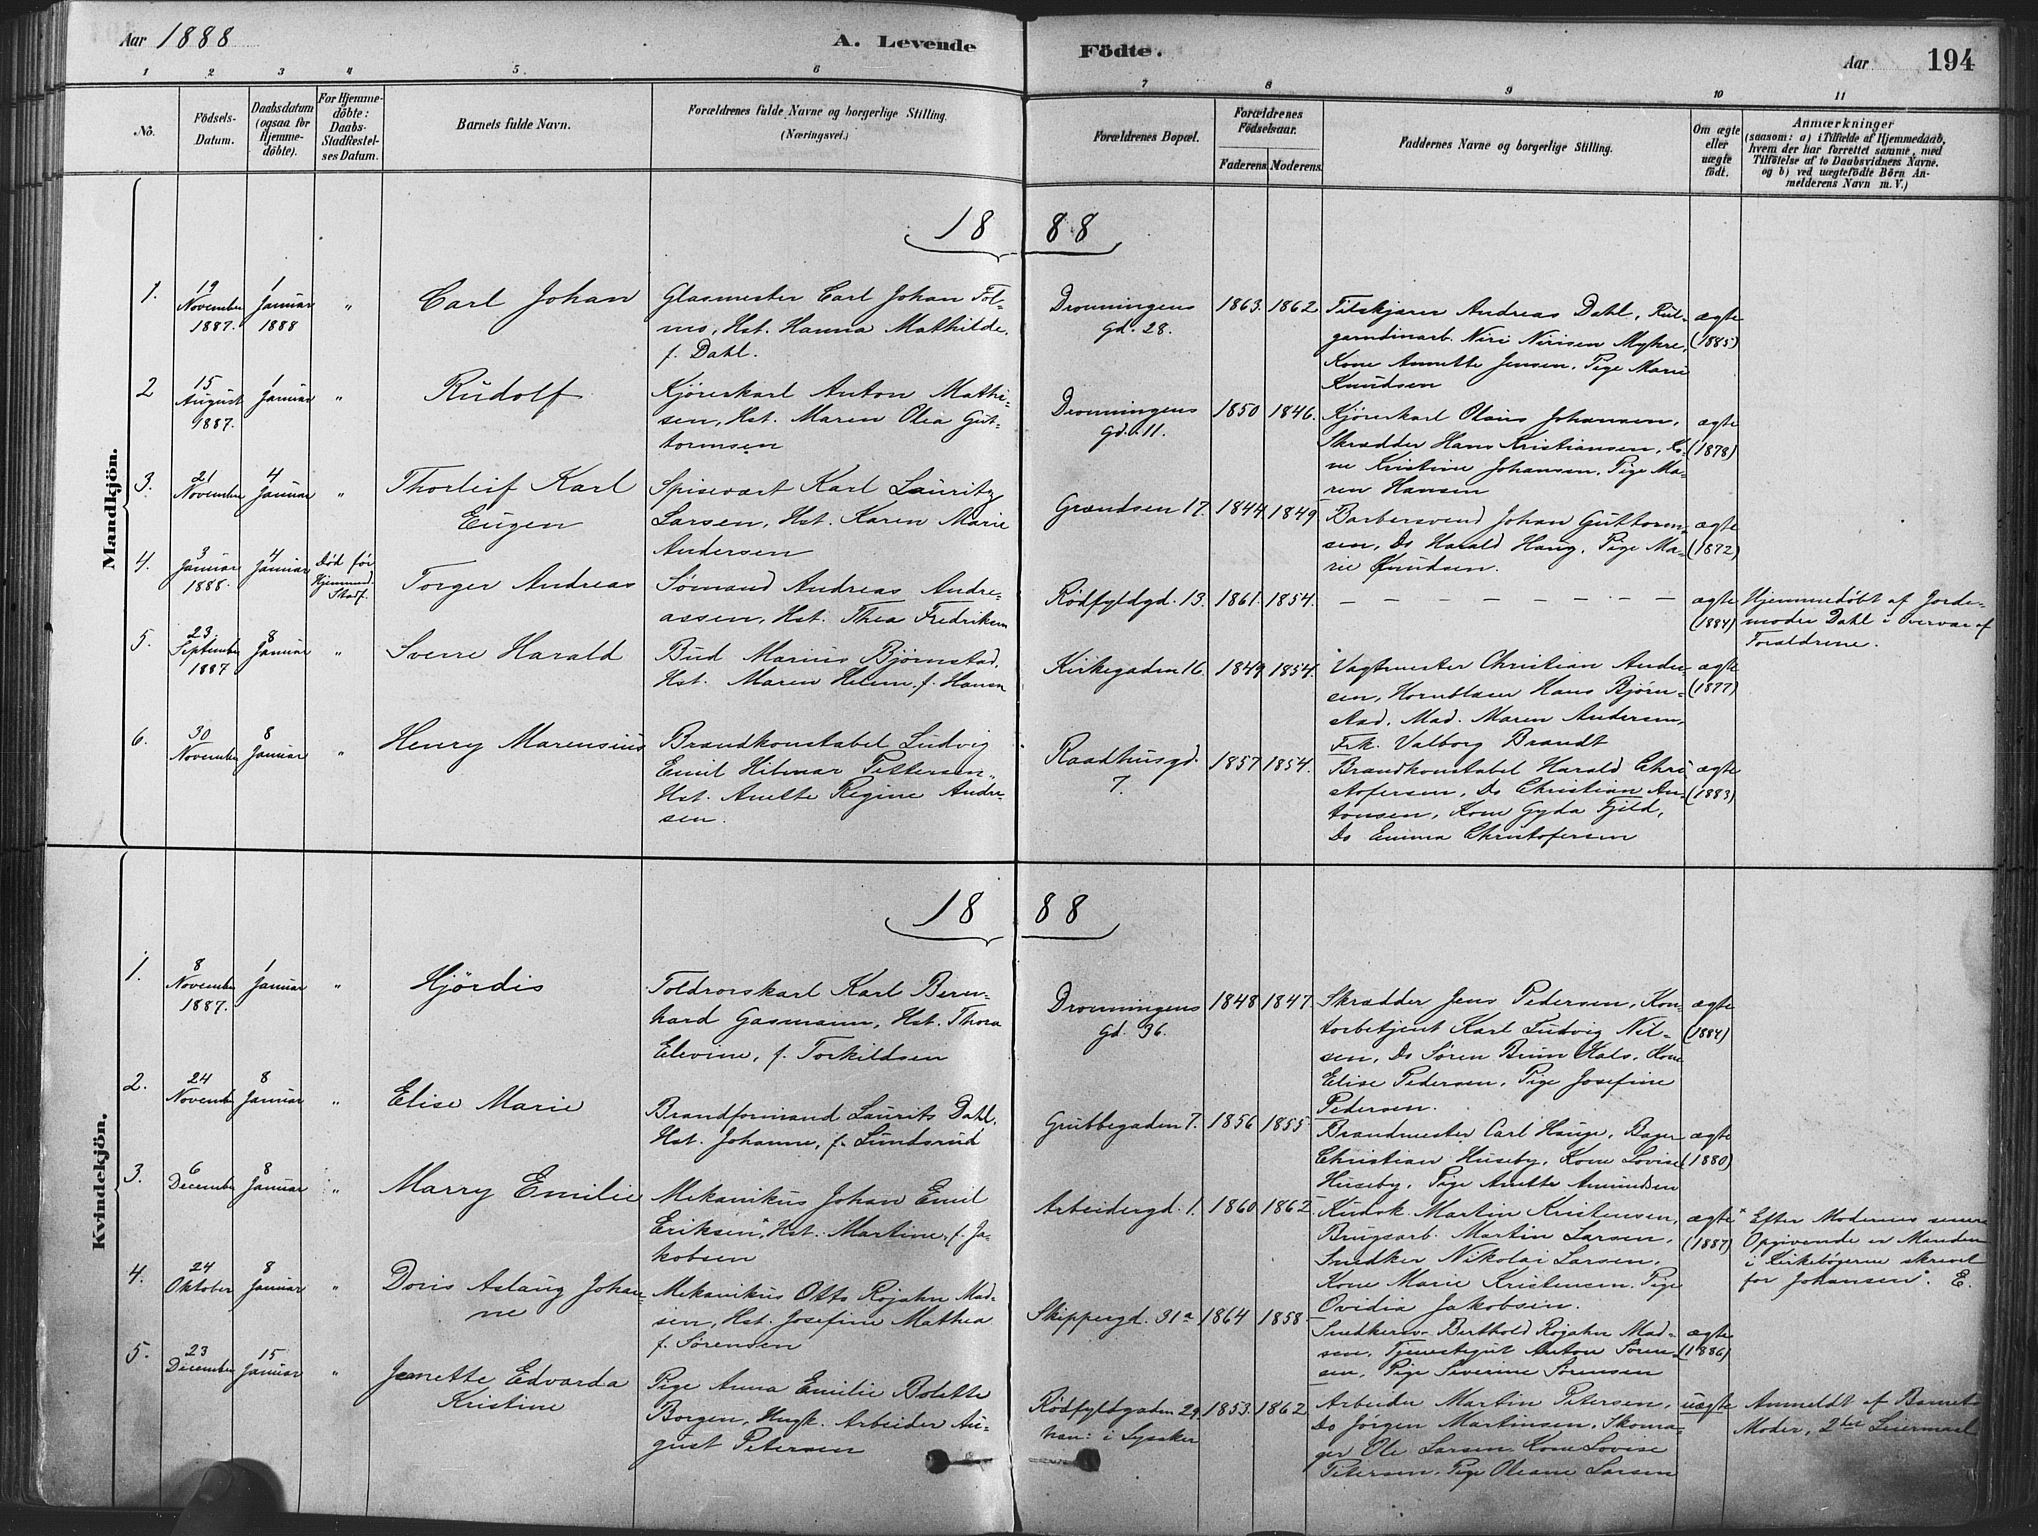 Aar 1888
A. Levende
Födte.
Aar
194
1
2
3
4
5.
6
7
8
9
10
11
No.
Födsels-
Datum.
Daabsdatum
(ogsaa for
Hjemme-
döbte).
For Hjemme-
döbte:
Daabs-
Stadfæstel-
ses Datum.
Barnets fulde Navn.
Forældrenes fulde Navne og borgerlige Stilling.
(Næringsvei.)
Forældrenes Bopæl.
Forældrenes
Födselsaar.
Faderens
Moderens.
Faddernes Navne og borgerlige Stilling.
Om ægte
eller
uægte
födt.
Anmærkninger
(saasom: a) i Tilfælde af Hjemmedaab,
hvem der har forrettet samme, med
Tilföielse af to Daabsvidners Navne.
og b) ved uægtefödte Börn An-
melderens Navn m. V.)
Mandkjön.
18 88
1.
19
November
1887.
1
Januar
1888
"
Carl Johan
Glasmester Carl Johan Tol-
, Hst. Hanna Mathilde,
f. Dahl.
Dronningens
gd. 28.
1863.
1862
Filskjærer Andreas Dahl,
Niri Nirisen Myhre,
Kone Annette Jensen, Pige Marie
Knudsen
ægte
(1885)
2
15
August
1887.
1
Januar
"
Rudolf
Kjørerkarl Anton Mathi-
sen, Hst. Maren Olea Gut-
tormsen
Dronningens
gd. 11.
1850
1846.
Kjørerkarl Olaus Johansen,
Skrædder Hans Kristiansen, Ko-
ne Kristine Johansen, Pige Ma-
ren Hansen
ægte
(1878)
3.
21
November
4
Januar
"
Thorleif Karl
Eugen
Spisevært Karl Lauritz
Larsen, Hst. Karen Marie
Andersen
Grændsen 17.
1844
1849
Barbersvend Johan Guttorm-
sen, Do Harald Haug, Pige Ma-
rie Knudsen.
ægte
(1872)
4.
3
Januar
1888.
4
Januar
Død før
Hjemmed.
Stadf.
Torger Andreas
Sømand Andreas Andre-
assen, Hst. Thea Fredriksen
Rødfyldgd. 13.
1861.
1854.
— — — — — — —
ægte
(1884)
Hjemmedøbt af Jorde-
moder Dahl i Overvær af
Forældrene.
5.
23
September
1887
8
Januar
"
Sverre Harald
Bud Marius Bjørnstad,
Hst. Maren Helene, f. Hansen
Kirkegaden 16.
1849
1854.
Vagtmester Christian Ander-
sen, Hornblæser Hans Bjørn-
stad, Mad. Maren Andersen,
Frk. Valborg Brandt
ægte
(1877)
6.
30
November
8
Januar
"
Henry Marensius
Brandkonstabel Ludvig
Emil Hilmar Pettersen,
Hst. Anette Regine Andre-
sen.
Raadhusgd.
7.
1857
1854.
Brandkonstabel Harald Chri-
stofersen, Do Christian An-
tonsen, Kone Gyda Fjeld,
Do Emma Christofersen
ægte
(1883)
Kvindekjön.
18 88
1.
8
November
1887.
1
Januar
"
Hjördis
Toldrorskarl Karl Bern-
hard Gasmann, Hst. Thora
Elevine, f. Torkildsen
Dronningens
gd. 36.
1848
1847.
Skrædder Jens Pedersen, Kon-
torbetjent Karl Ludvig Nil-
sen, Do Søren Brun Hals, Kone
Elise Pedersen, Pige Josefine
Pedersen.
ægte
(1884)
2.
24
November
8
Januar
"
Elise Marie
Brandformand Laurits Dahl,
Hst. Johanne, f. Lundsrud
Grubbegaden 7.
1856
1855
Brandmester Carl Hauge, Bager
Christian Huseby, Kone Lovise
Huseby, Pige Anette Amundsen
ægte
(1880)
3.
6
December
8
Januar
"
Marry Emilie
Mekanikus Johan Emil
Eriksen", Hst. Martine, f. Ja-
kobsen
Arbeidergd. 1.
1860
1862.
Kudsk Martin Kristensen,
Brugsarb. Martin Larsen,
Snedker Nikolai Larsen,
Kone Marie Kristensen, Pige
Ovidia Jakobsen.
ægte
(1887)
" Efter Moderens senere
Opgivende er Manden
i Kirkebøgerne skrevet
for Johansen". E.
4.
24
Oktober
8
Januar
"
Doris Aslaug Johan-
ne
Mekanikus Otto Röjahn Mad-
sen, Hst. Josefine Mathea
f. Sörensen
Skippergd. 31a
1864
1858
Snedkersv. Berthold Rojahn Mad-
sen, Tjenestegut Anton Sören-
sen, Pige Severine Sorensen
ægte
(1886)
5.
23
December
15
Januar
"
Jeanette Edvarda
Kristine
Pige Anna Emilie Bolette
Borgen, Ungk. Arbeider Au-
gust Petersen
Rødfyldgaden 29,
han: i Lysaker
1853.
1862
Arbeider Martin Petersen,
Do Jörgen Martinsen, Skoma-
ger Ole Larsen, Kone Lovise
Petersen, Pige Oleane Larsen
uægte
Anmeldt af Barnets
Moder, 2det Leiermaal